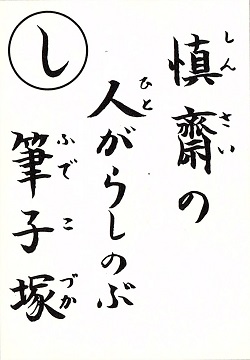 し
慎齋の
人がらしのぶ
筆子塚
しんさい
ひと
ふでこづか